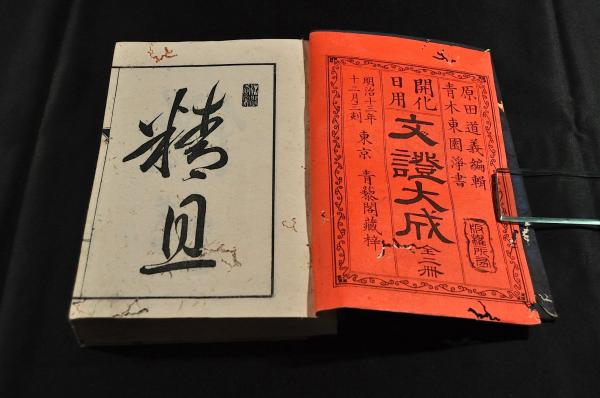 原田道義編輯
青木東園淨書
開化
日用
文證大成
全一冊
明治十三年
十二月三刻
東京 青黎閣藏梓
精且